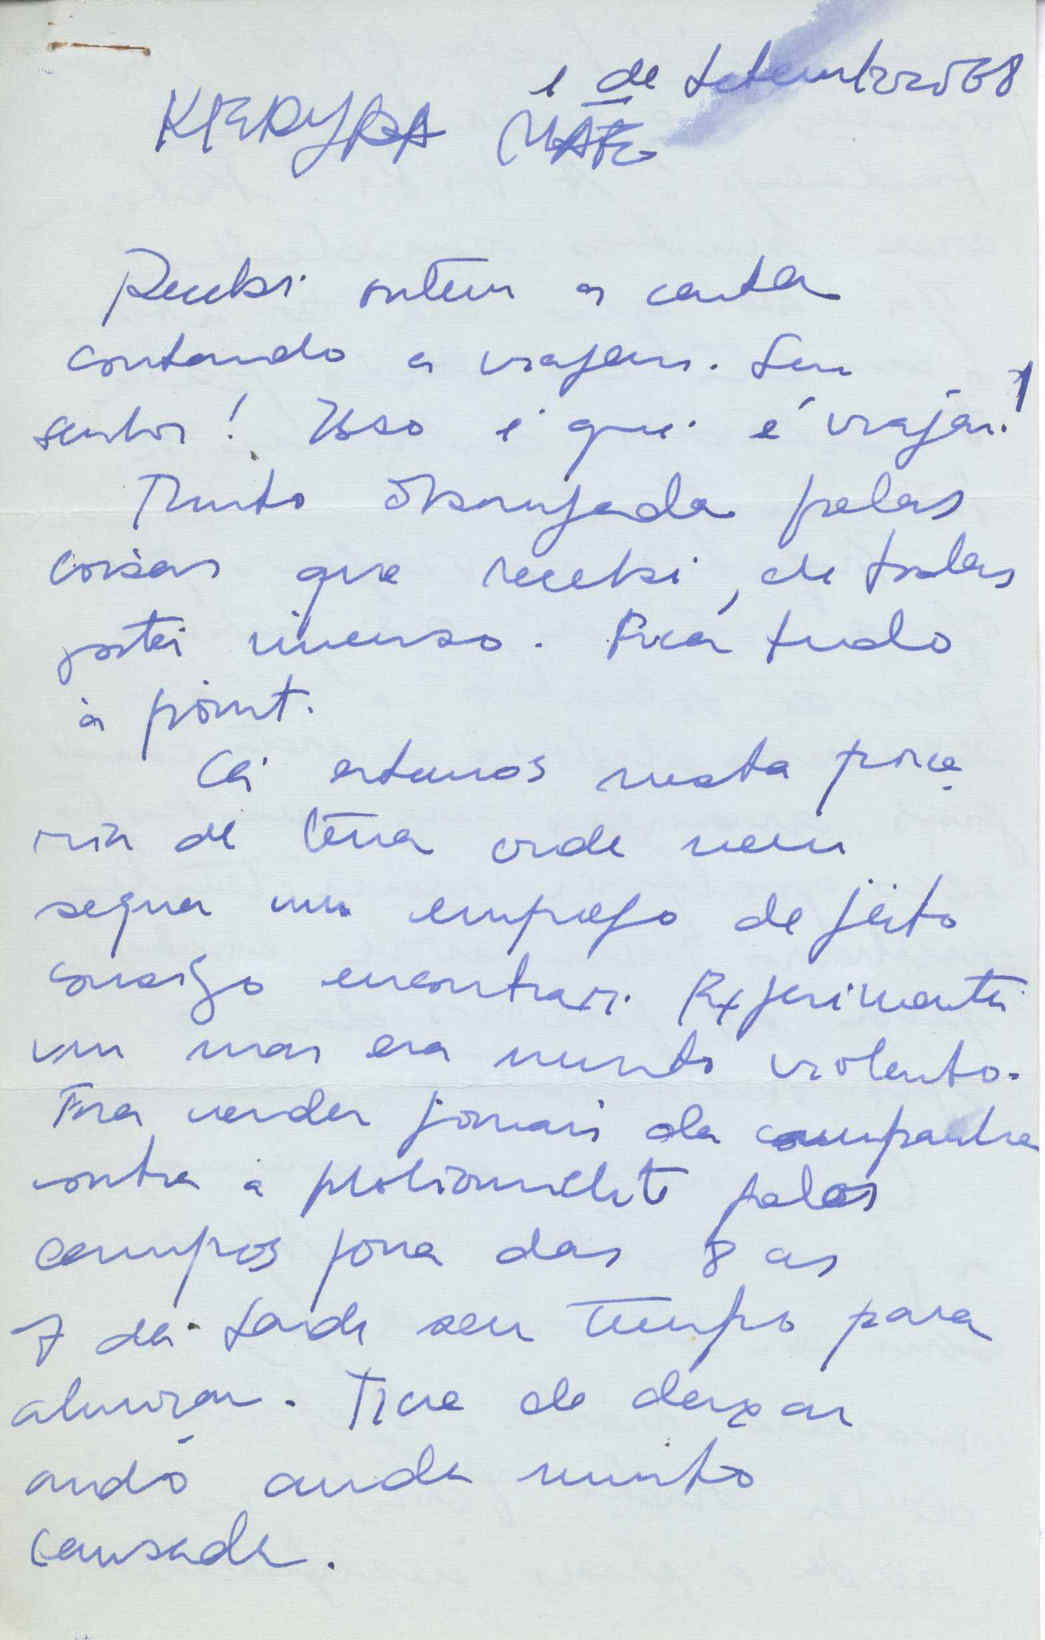 1 de setembro 68
Recebi ontem a carta
contando a viajem. Sim
senhor! Isso é que é viajar!
Muito obrigada pelas
coisas que recebi, de todas
gostei imenso. Fica tudo
à point.
Cá estamos nesta porca
ria de terra onde nem
sequer um emprego de jeito
consigo encontrar. Experimentei
um mas era muito violento.
Era vender jornais da campanha
contra a poliomielite pelos
campos fora das 8 as
7 da tarde sem tempo para
almoçar. Tive de deixar
ando ainda muito
cansada.